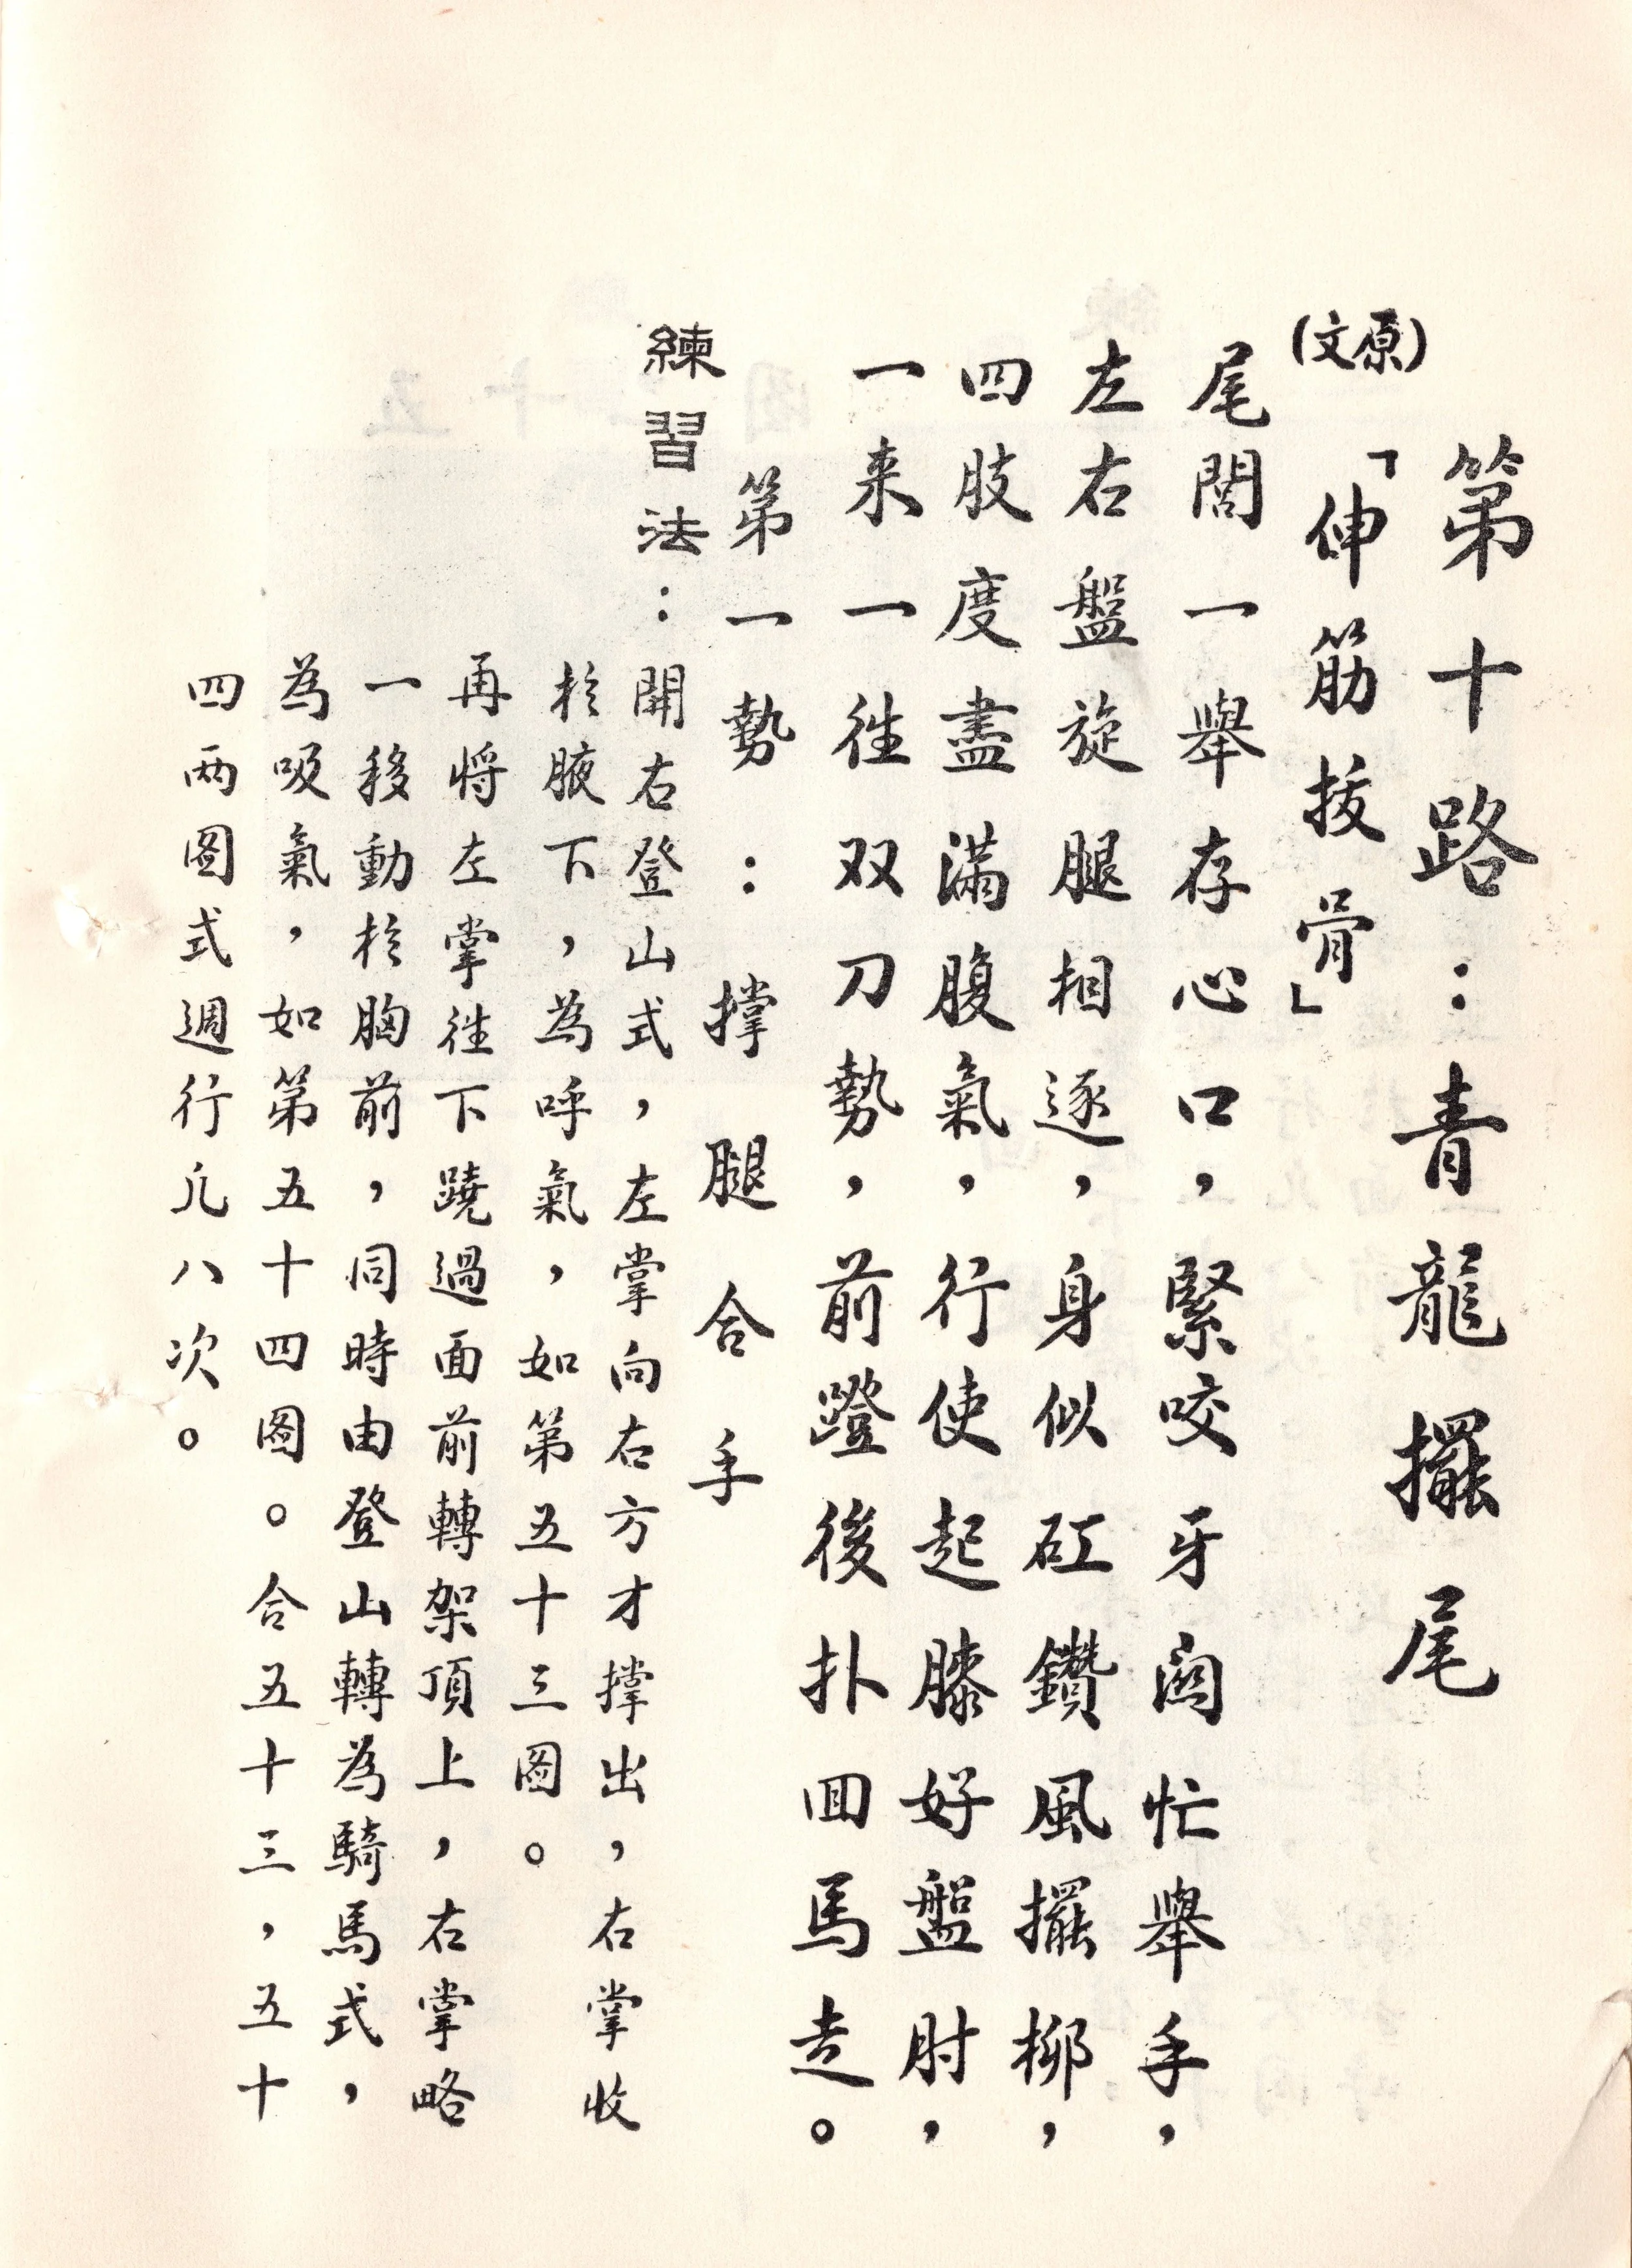 第十路：青龍擺尾
「伸筋拔骨」
(原文)
尾閭一舉存心口，緊咬牙関忙舉手，
左右盤旋腿相逐，身似矼鑽風擺柳，
四肢度盡滿腹氣，行使起膝好盤肘，
一来一徃双刀勢，前蹬後扑回馬走。
第一勢：撑腿合手
練習法：開右登山式，左掌向右方才撑出，右掌收
於腋下，為呼氣，如第五十三图。
再将左掌徃下蹺過面前轉架頂上，右掌略
一移動於胸前，同時由登山轉為騎馬式，
為吸氣，如第五十四图。合五十三，五十
四两图式週行凢八次。